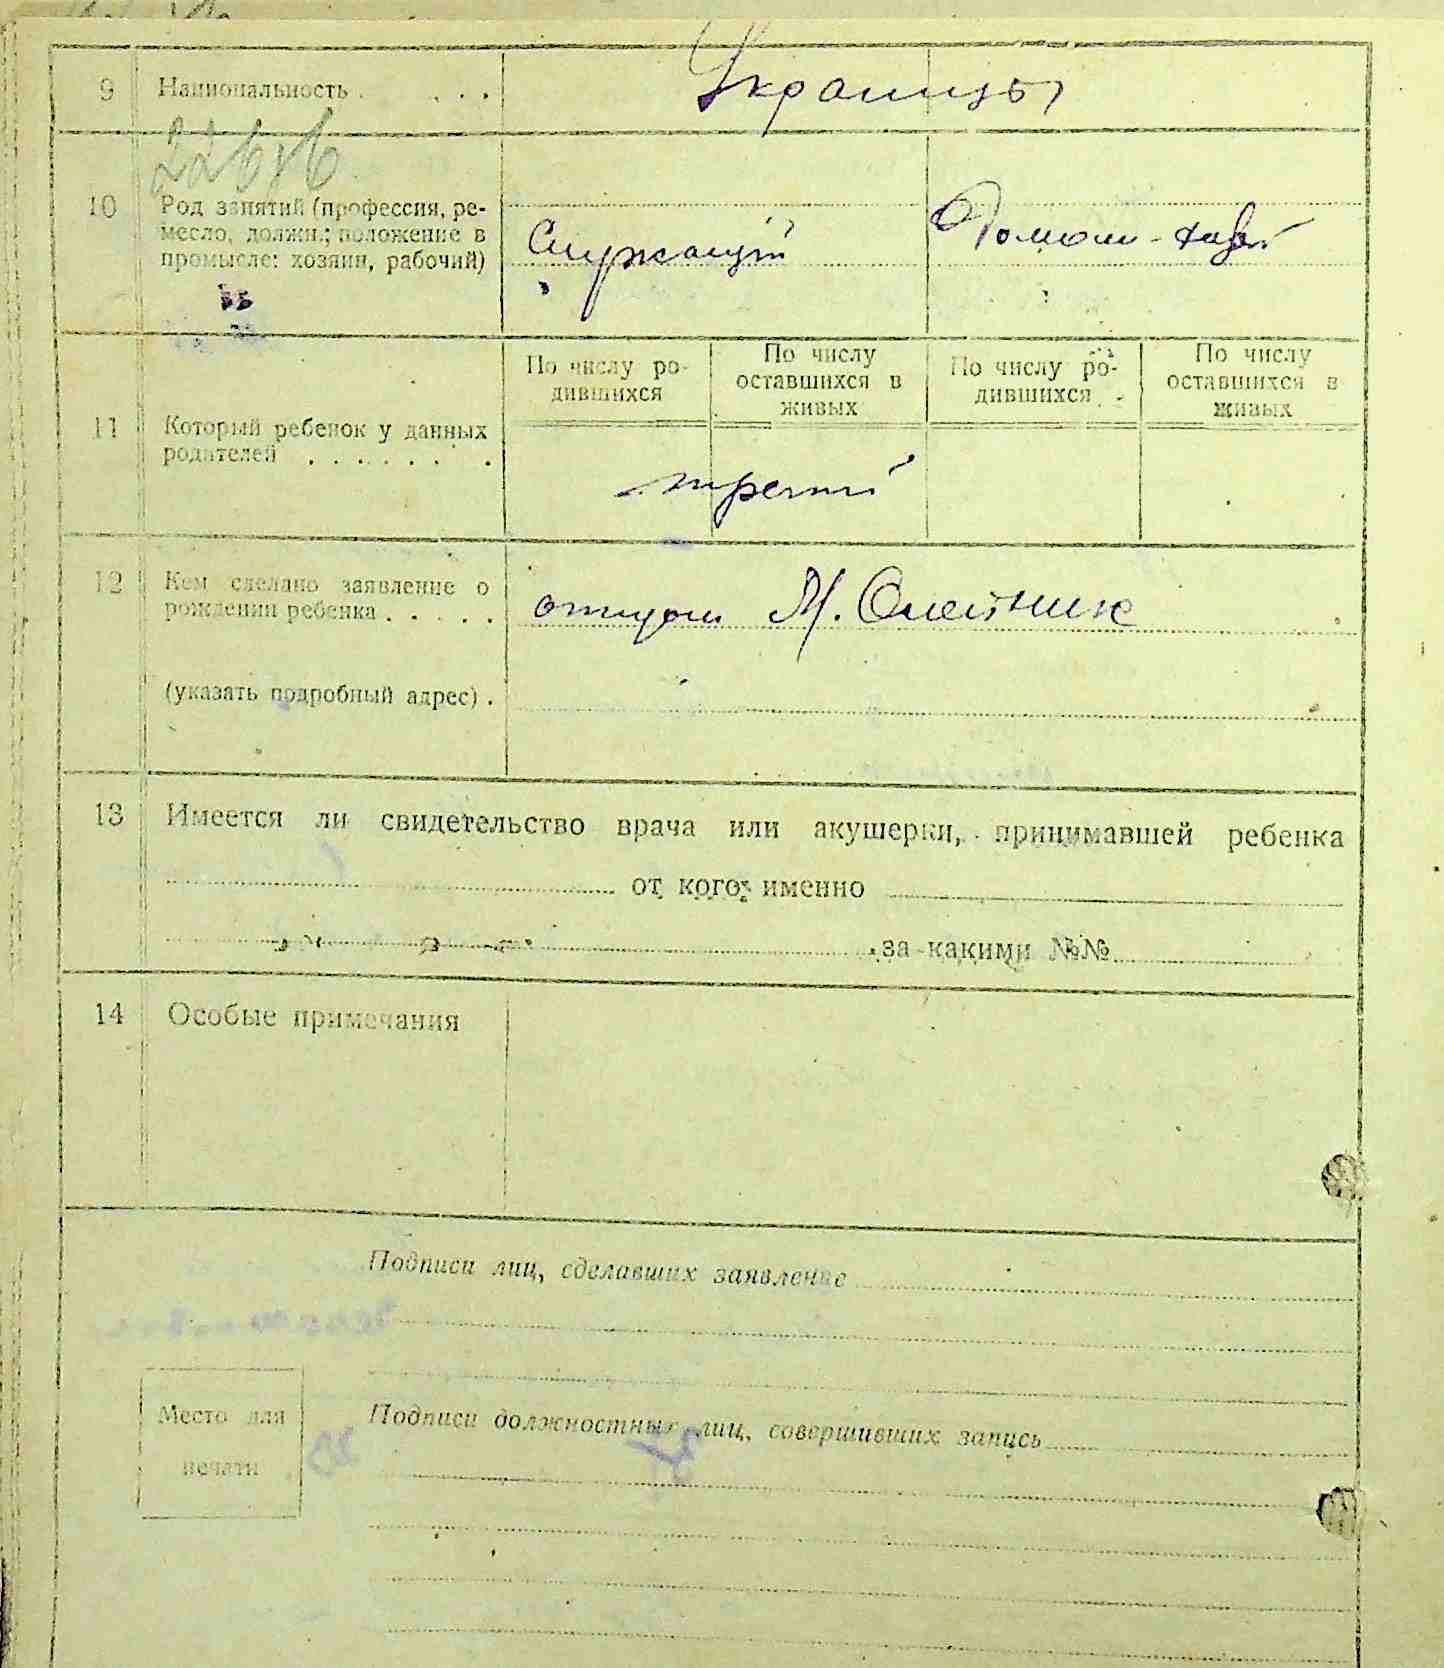 9 Национальность . . . . Украинцы
10 Род занятий (профессия, ре-
месло, должн.; положение в
промысле: хозяин, рабочий)
Служащий
Домаш-
По числу ро-
дившихся
По числу
оставшихся в
живых
По числу ро-
дившихся
По числу
оставшихся в
живых
11 Который ребенок у данных
родителей . . . . . . .
третий
12 Кем сделано заявление о
рождении ребенка . . . . .
отцом М. Олейник
(указать подробный адрес) .
13 Имеется ли свидетельство врача или акушерки, принимавшей ребенка
от кого именно
за какими №№
14 Особые примечания
Подписи лиц, сделавших заявление
Место для
печати
Подписи должностных лиц, совершивших запись